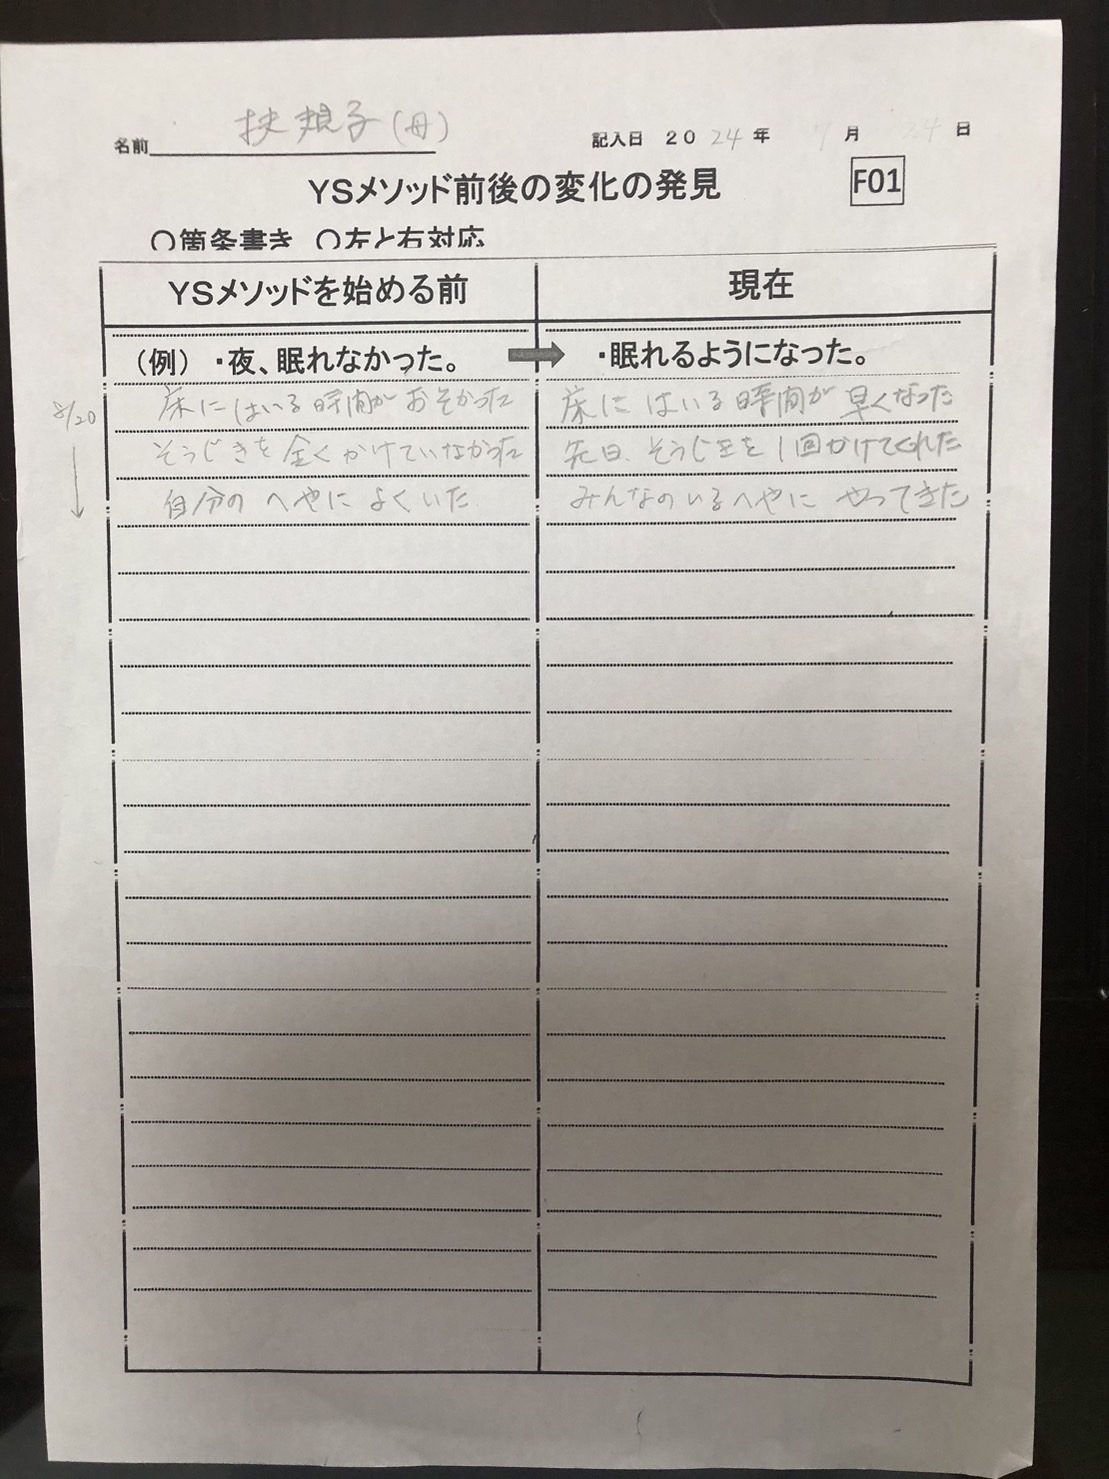 名前 扶規子(母) 記入日 2024年 7月 24日
YSメソッド前後の変化の発見 F01
〇箇条書き 〇左と右対応
YSメソッドを始める前 現在
(例) ・夜、眠れなかった。 ・眠れるようになった。
8/20 床にはいる時間がおそかった 床にはいる時間が早くなった
そうじきを全くかけていなかった 先日、そうじきを1回かけてくれた
自分のへやによくいた みんなのいるへやにやってきた